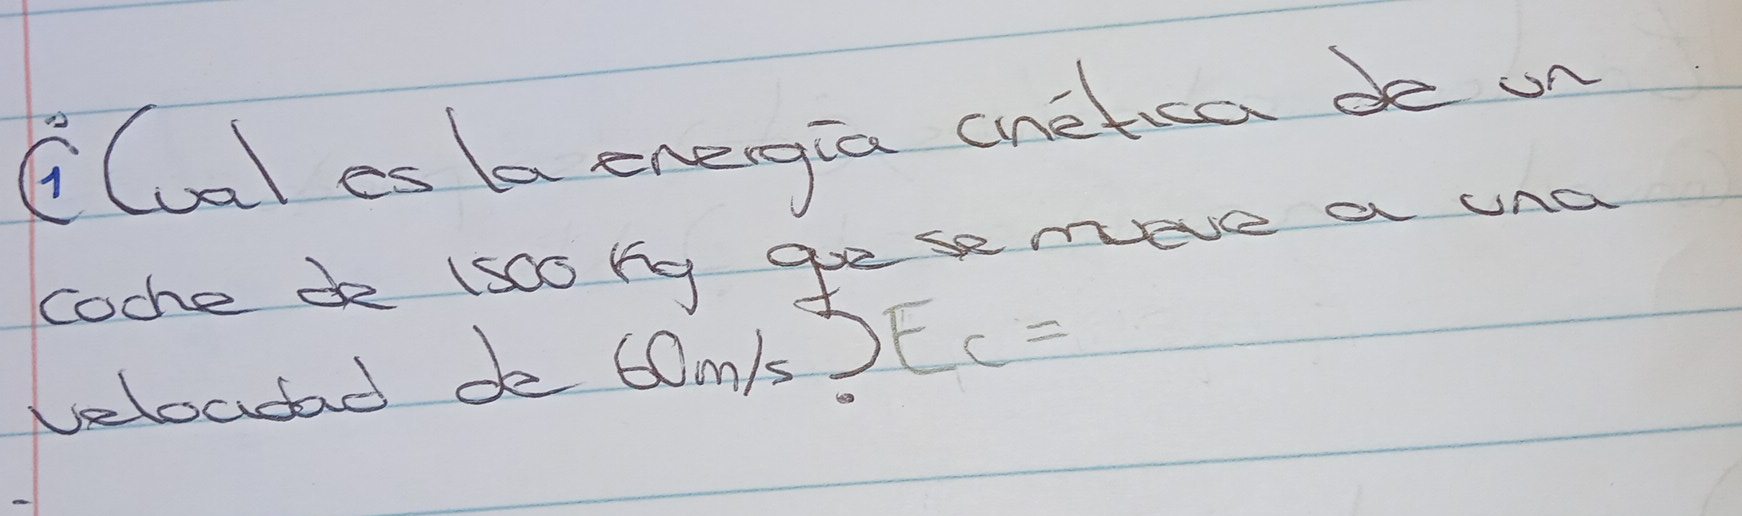 ¿Cual es la energía cinética de un
coche de 1500 Kg que se mueve a una
velocidad de 60m/s? Ec =